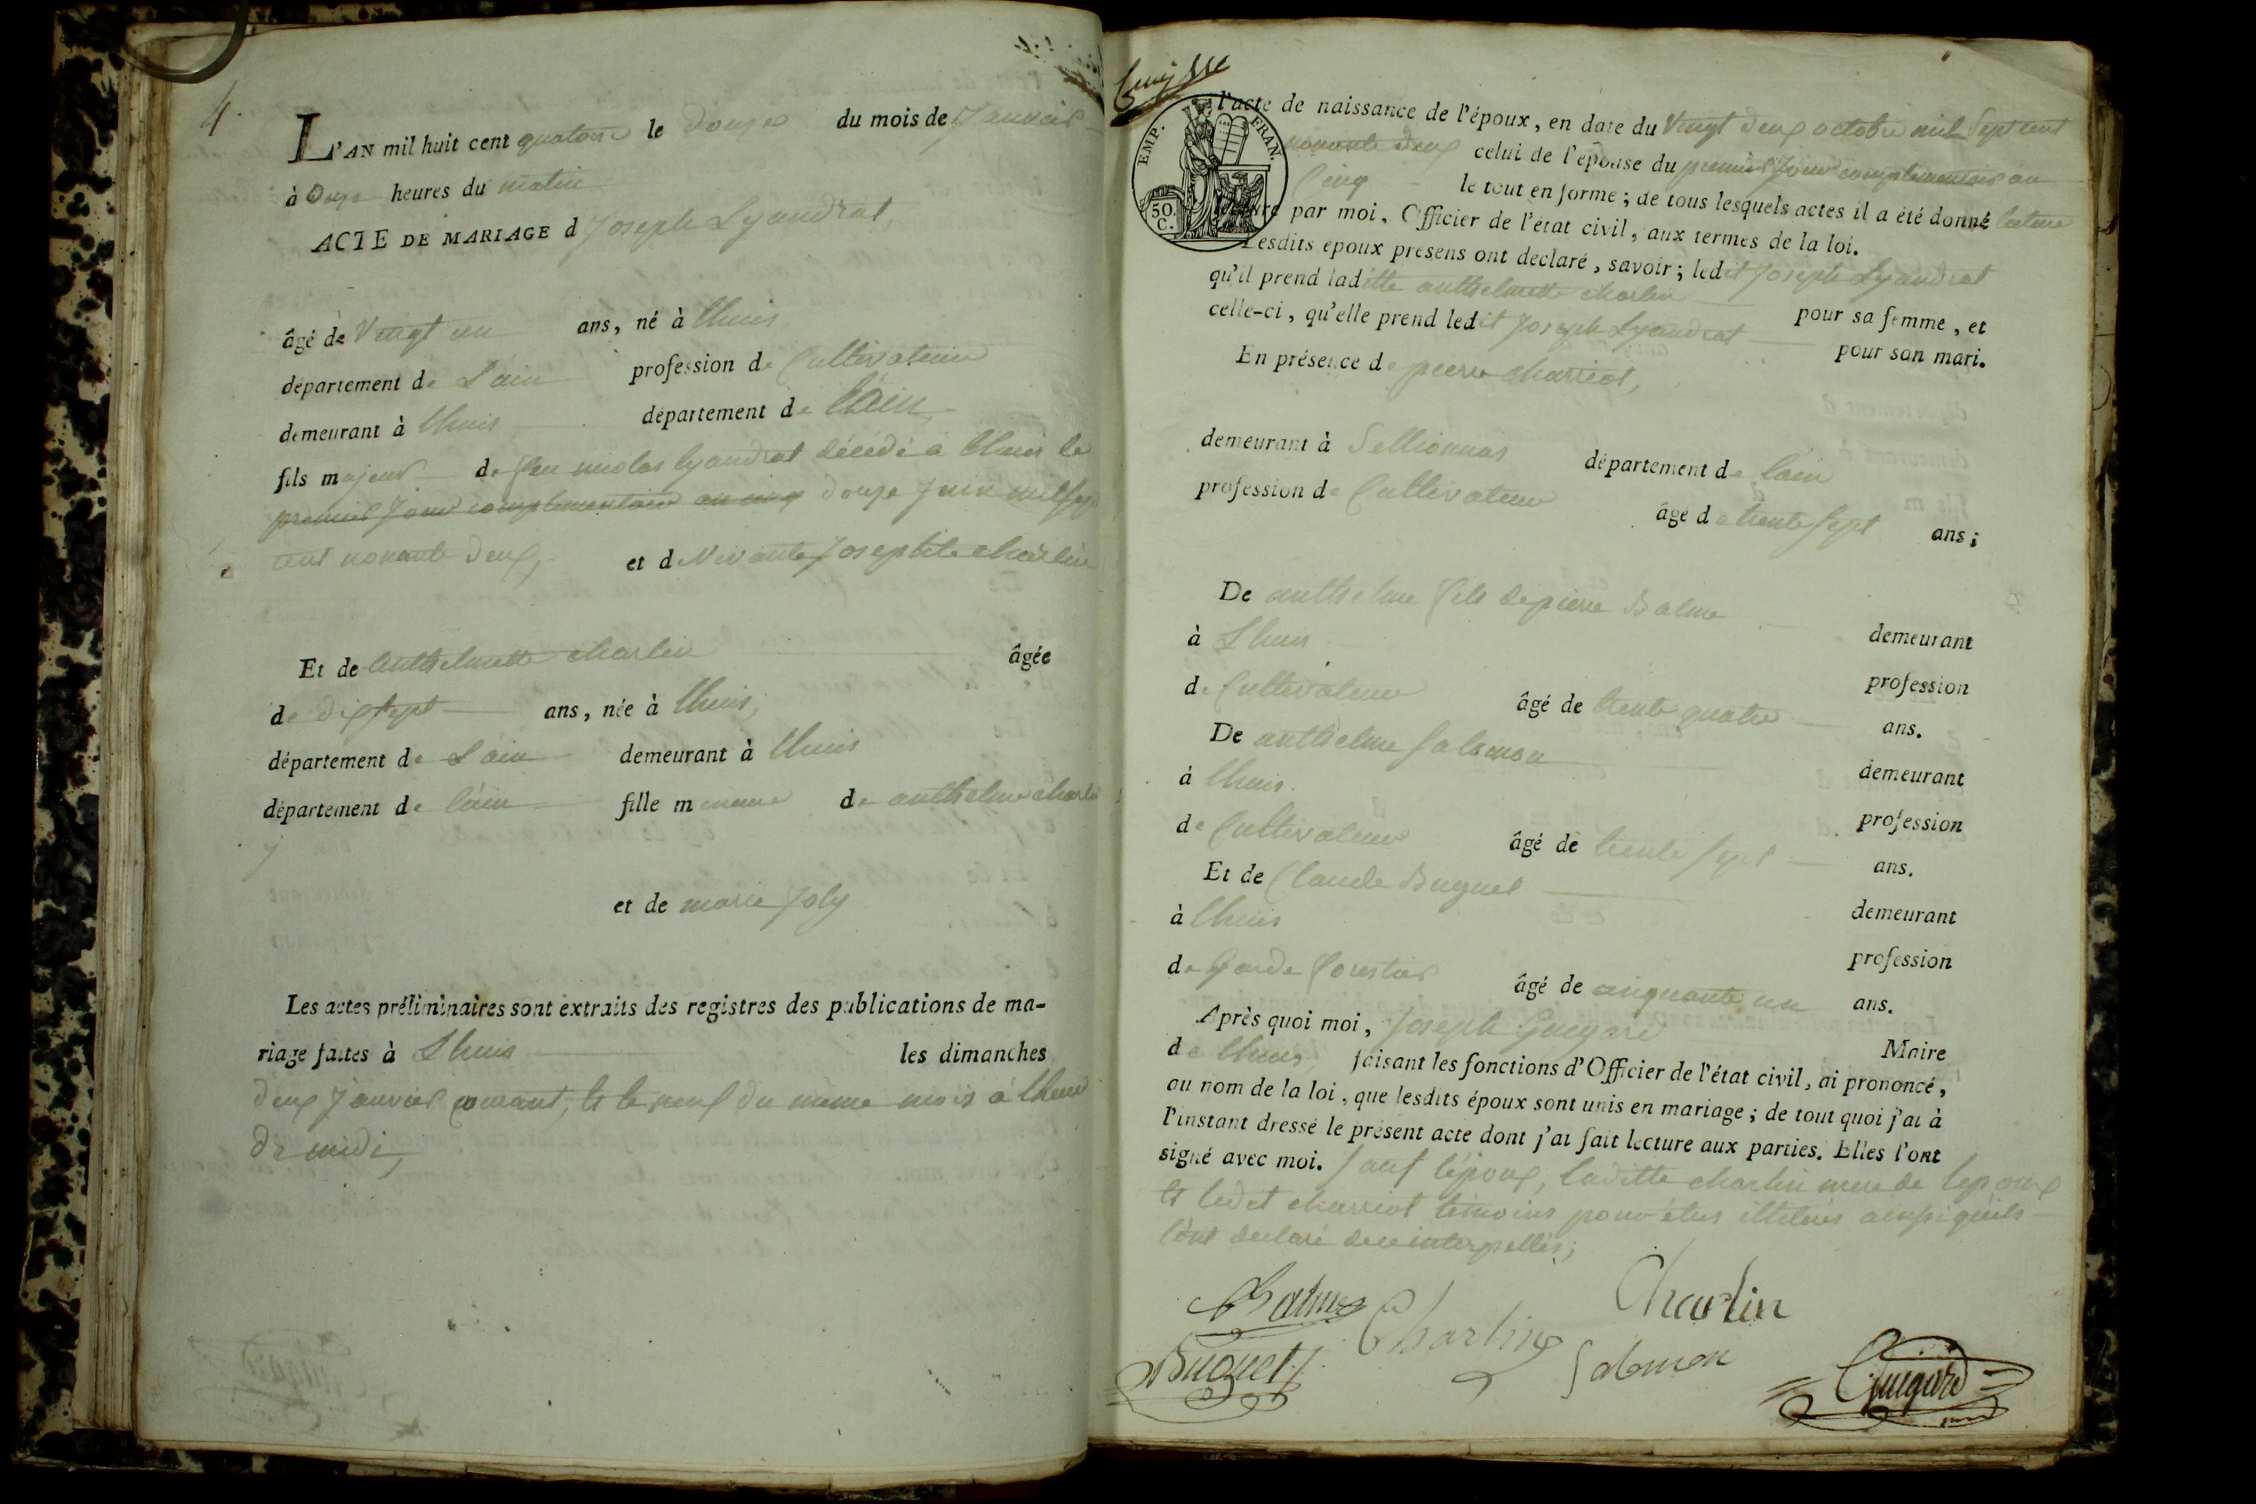 4.
L'AN mil huit cent quatorze le douze du mois de Janvier
à Onze heures du matin
ACTE DE MARIAGE d Joseph Lyandrat,
âgé de Vingt un ans, né à Lhuis
département de L'ain profession de Cultivateur
demeurant à Lhuis département de L'ain
fils majeur de feu nicolas Lyandrat décédé à Lhuis le
premier Jour complementaire an cinq douze Juin mil sept
cent nonante deux, et de Vivante Josephte charlin
Et de Anthelmette charlin âgée
de dix sept ans, née à Lhuis,
département de L'ain demeurant à Lhuis
département de L'ain fille mineure de anthelme charlin
et de marie Joly
Les actes préliminaires sont extraits des registres des publications de ma-
riage faites à Lhuis les dimanches
deux Janvier courant, et le neuf du même mois à l'heure
de midi,
l'acte de naissance de l'époux, en date du Vingt deux octobre mil Sept cent
nonante deux celui de l'épouse du premier Jour complementaire an
Cinq le tout en forme; de tous lesquels actes il a été donné lecture
lecture par moi, Officier de l'état civil, aux termes de la loi.
EMP. FRAN. 50. C.
Lesdits époux présens ont déclaré, savoir; ledit Joseph Lyandrat
qu'il prend laditte anthelmette charlin pour sa femme, et
celle-ci, qu'elle prend ledit Joseph Lyandrat pour son mari.
En présence de pierre charriot,
demeurant à Sellionnas département de L'ain
profession de Cultivateur âgé de trente sept ans;
De anthelme fils de pierre Balme demeurant
à Lhuis profession
de Cultivateur âgé de trente quatre ans.
De anthelme Salomon demeurant
à Lhuis. profession
de Cultivateur âgé de trente sept ans.
Et de Claude Buguet demeurant
à Lhuis profession
de Garde forestier âgé de cinquante un ans.
Après quoi moi, Joseph Guigard Maire
de Lhuis, faisant les fonctions d'Officier de l'état civil, ai prononcé,
au nom de la loi, que lesdits époux sont unis en mariage; de tout quoi j'ai à
l'instant dressé le présent acte dont j'ai fait lecture aux parties. Elles l'ont
signé avec moi. Sauf l'époux, laditte charlin mere de lepoux
et ledit charriot témoins pour être illitérés ainsi qu'ils
l'ont declaré de ce interpellés;
Balme Charlin Charlin
Buguet Salomon Guigard